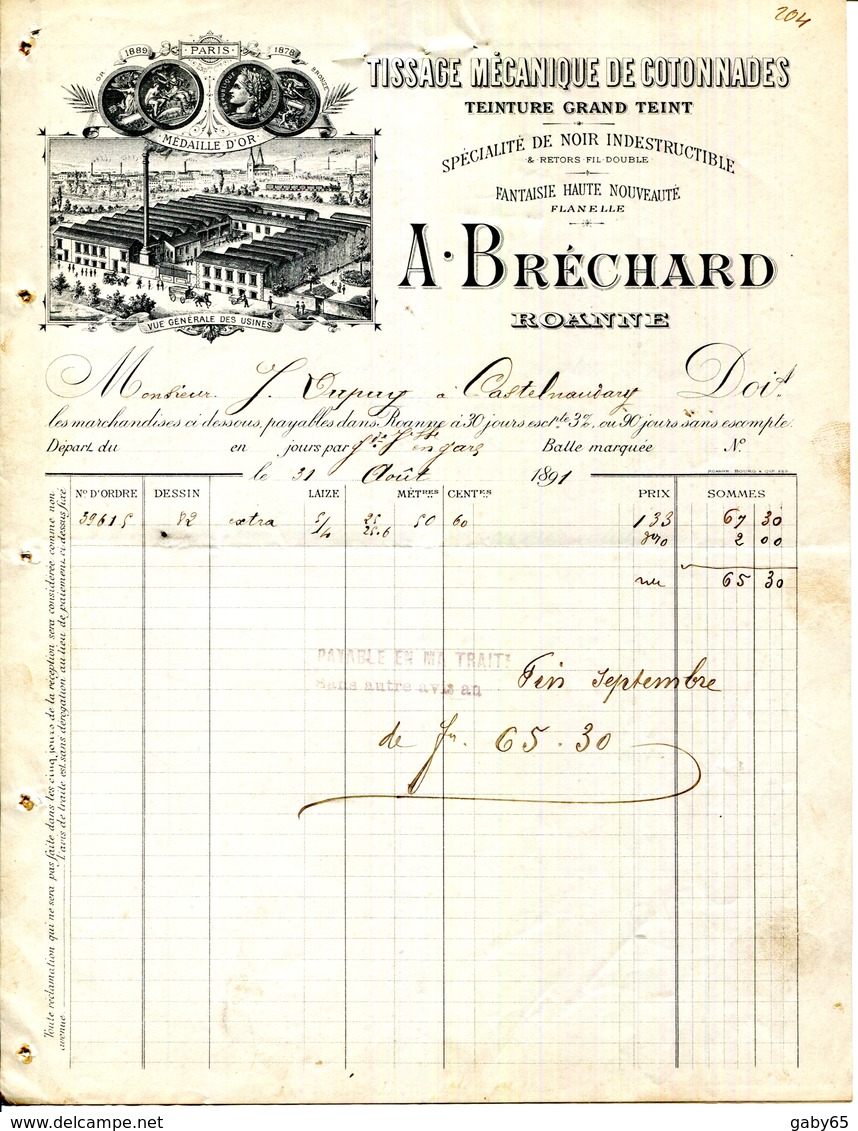 204
OR 1889 PARIS 1878 BRONZE
MÉDAILLE D'OR
VUE GÉNÉRALE DES USINES
TISSAGE MÉCANIQUE DE COTONNADES
TEINTURE GRAND TEINT
SPÉCIALITÉ DE NOIR INDESTRUCTIBLE
& RETORS FIL DOUBLE
FANTAISIE HAUTE NOUVEAUTÉ
FLANELLE
A. BRÉCHARD
ROANNE
Monsieur J. Dupuy à Castelnaudary Doit
les marchandises ci dessous, payables dans Roanne à 30 jours escpte 3%, ou 90 jours sans escompte.
Départ du en jours par en gare Balle marquée No
le 31 Août 1891
No D'ORDRE DESSIN LAIZE MÈTRES CENTES PRIX SOMMES
39615 82 extra 5/4 25 50 60 133 67 30
5/4 25.6 3% 2 00
65 30
PAYABLE EN MA TRAITE
Sans autre avis au Fin Septembre
de Fr. 65.30
Toute réclamation qui ne sera pas faite dans les cinq jours de la réception sera considérée comme non
avenue. L'avis de traite est sans dérogation au lieu de paiement ci dessus fixé
gaby65